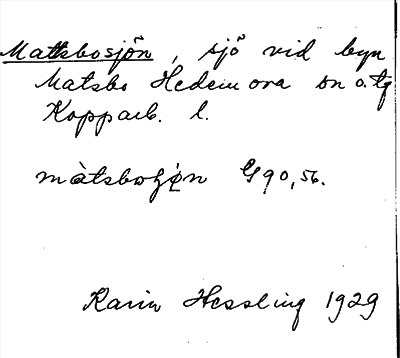 Mattsbosjön, sjö vid byn
Matsbo Hedemora sn o. tg
Kopparb. l.
màtsboʃø̣n G 90, 56.
Karin Hessling 1929